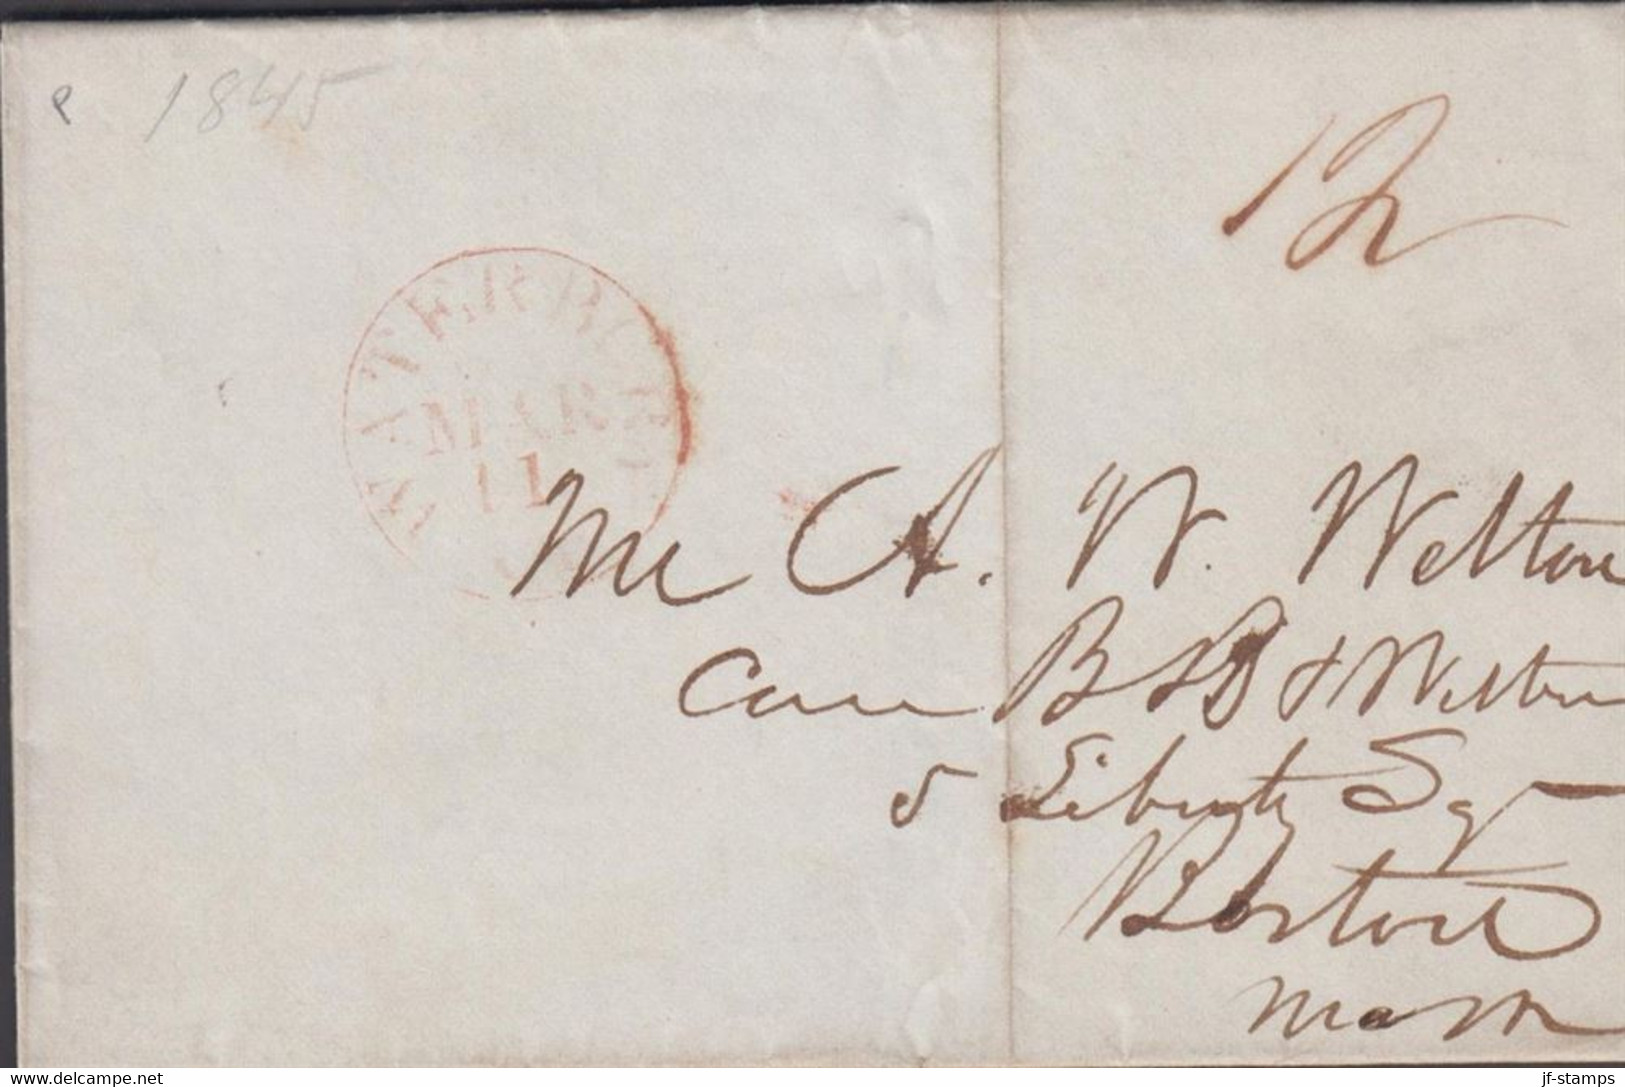 1845
12
WATERBURY
MAR
11
Mr A. W. Welton
Care B & Welton
5 Liberty Sqr
Boston
Mass
www.delcampe.net
jf-stamps